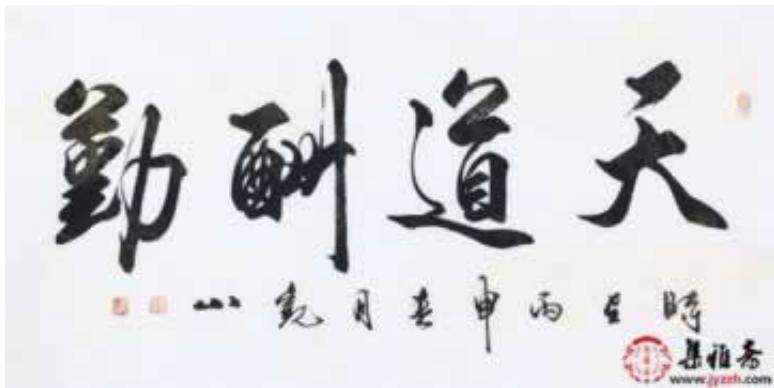 天道酬勤
時在丙申春月
集雅斋
www.jyzzh.com